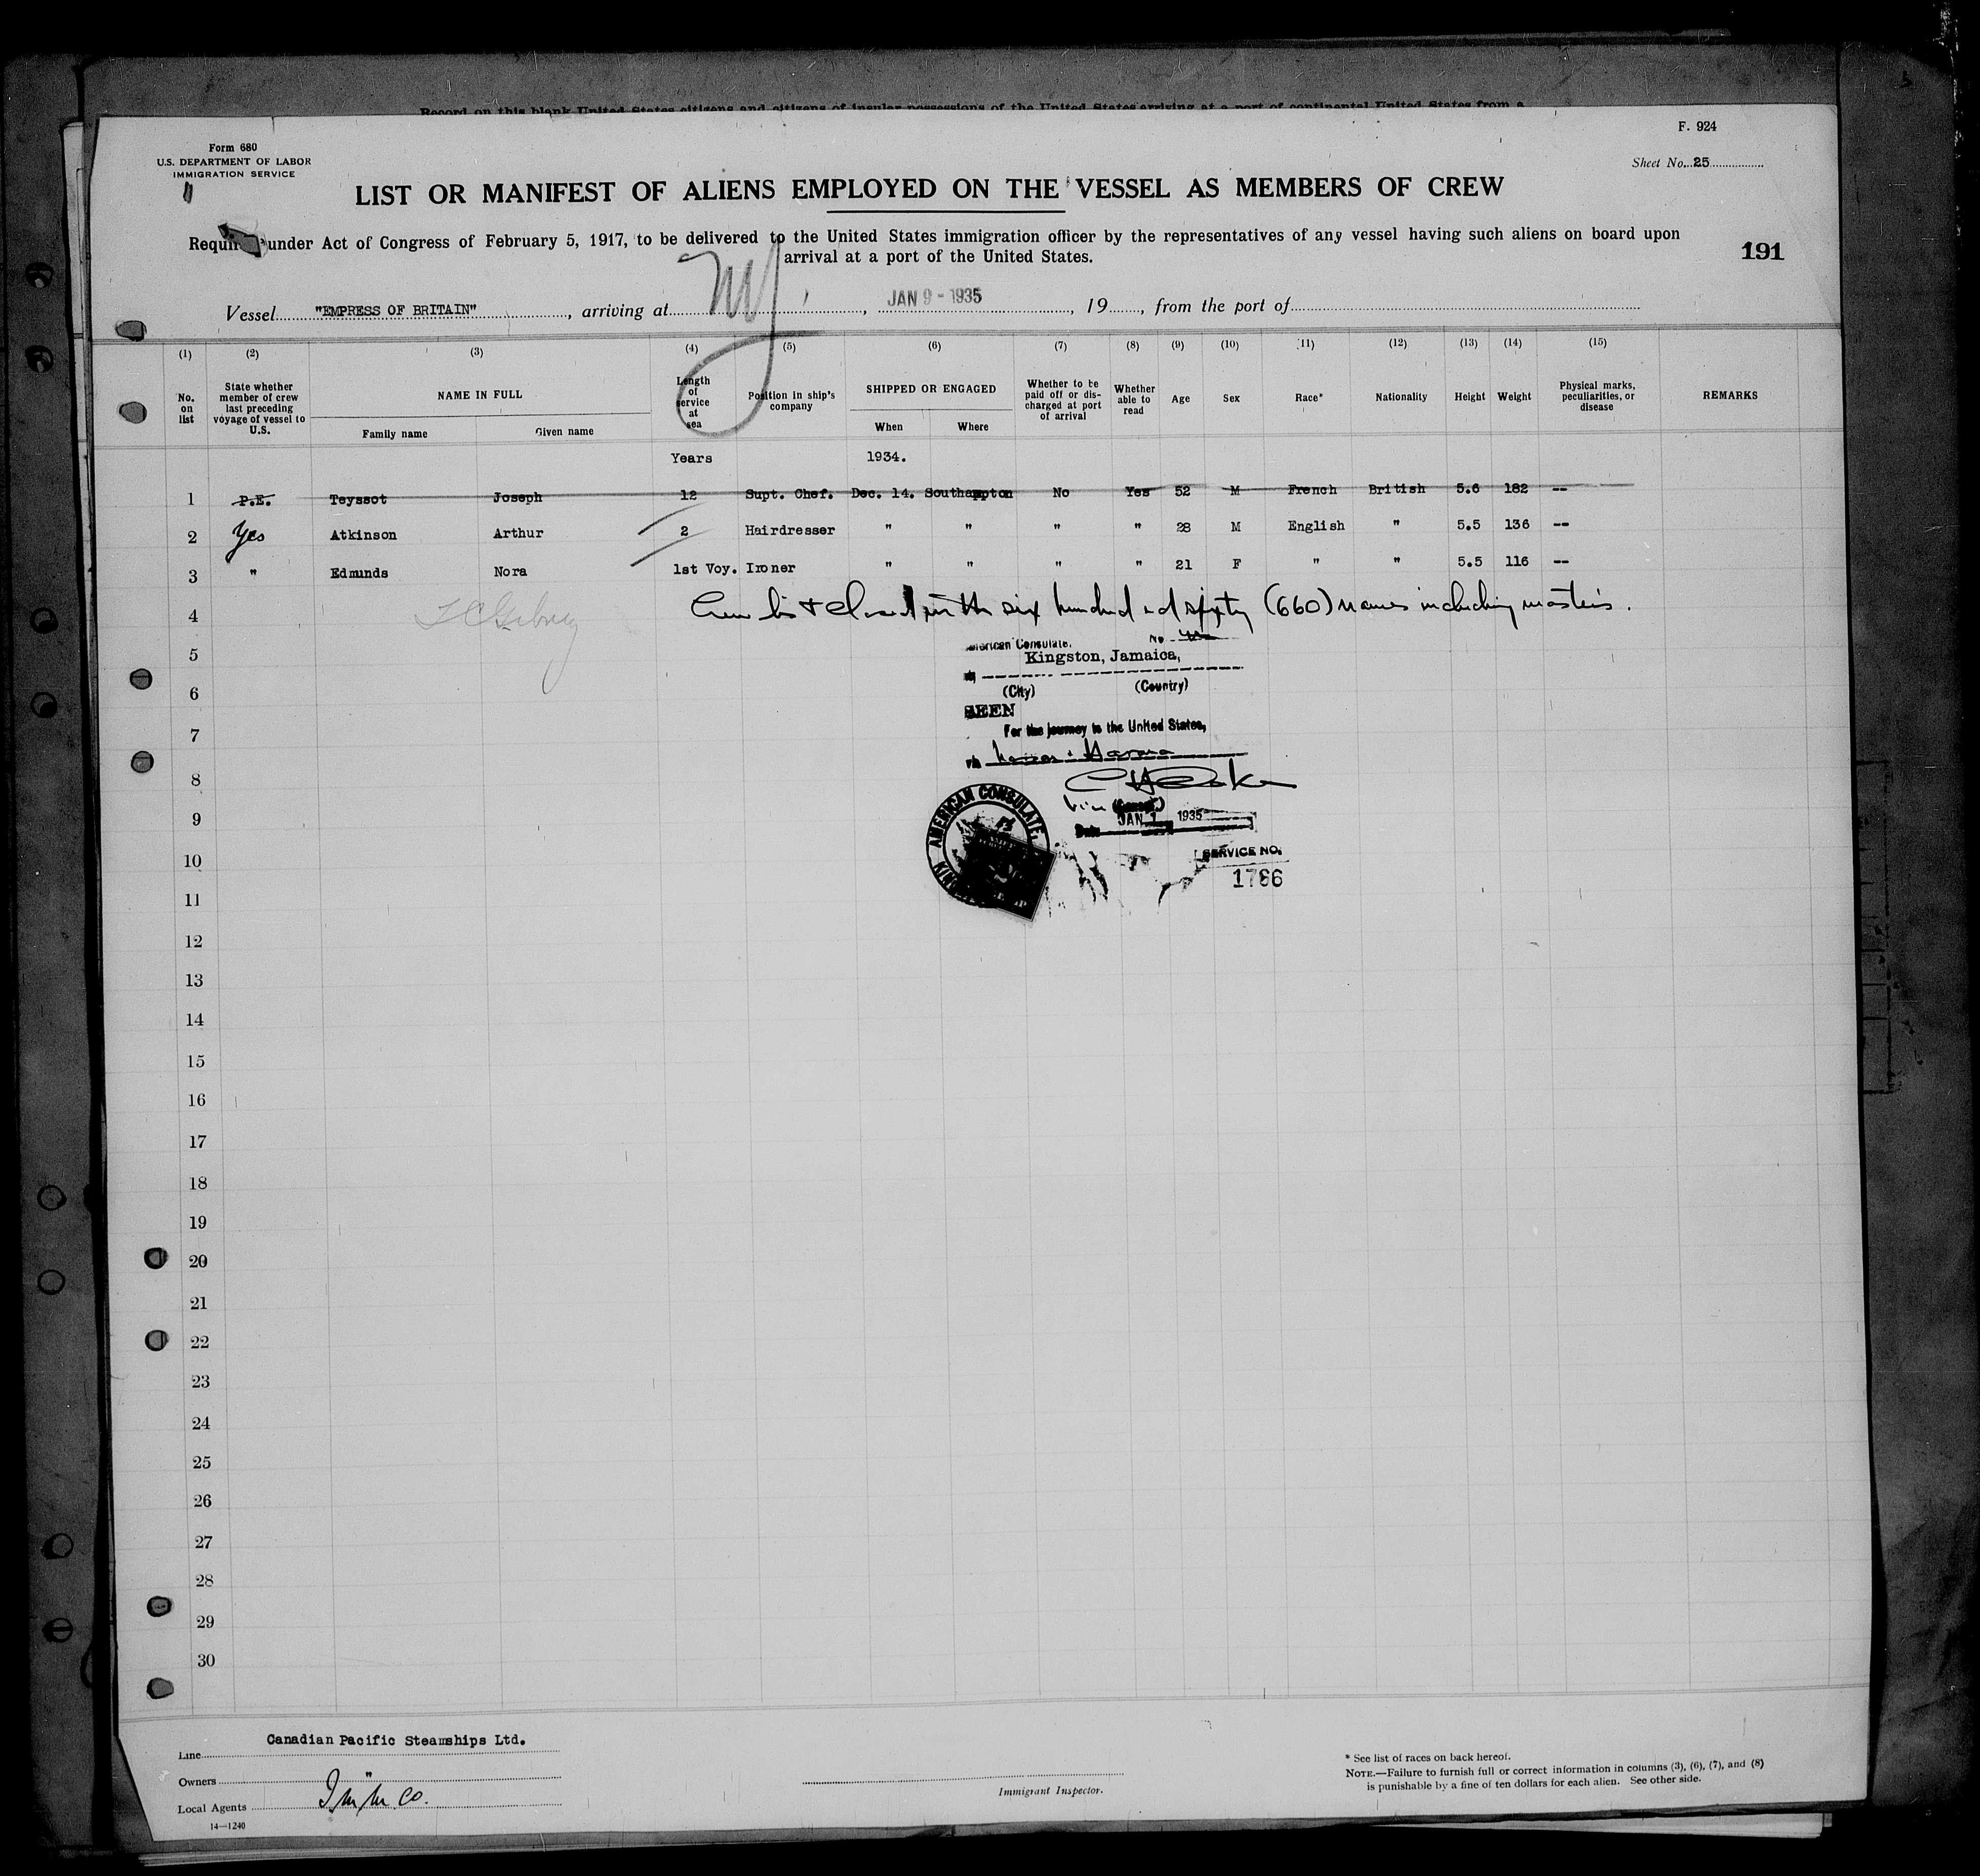 Record on this blank United States citizens and citizens of insular possessions of the United States arriving at a port of continental United States from a
F. 924
Form 680
U.S. DEPARTMENT OF LABOR
IMMIGRATION SERVICE
Sheet No. 25
LIST OR MANIFEST OF ALIENS EMPLOYED ON THE VESSEL AS MEMBERS OF CREW
under Act of Congress of February 5, 1917, to be delivered to the United States immigration officer by the representatives of any vessel having such aliens on board upon
arrival at a port of the United States.
191
Vessel "EMPRESS OF BRITAIN", arriving at NY, JAN 9 - 1935, 19, from the port of
(1) (2) (3) (4) (5) (6) (7) (8) (9) (10) (11) (12) (13) (14) (15)
No. on list
State whether member of crew last preceding voyage of vessel to U.S.
NAME IN FULL
Family name
Given name
Length of service at sea
Position in ship's company
SHIPPED OR ENGAGED
When
Where
Whether to be paid off or discharged at port of arrival
Whether able to read
Age
Sex
Race*
Nationality
Height
Weight
Physical marks, peculiarities, or disease
REMARKS
Years 1934.
1 P.E. Teyssot Joseph 12 Supt. Chef. Dec. 14. Southampton No Yes 52 M French British 5.6 182 --
2 Yes Atkinson Arthur 2 Hairdresser " " " " 28 M English " 5.5 136 --
3 " Edmunds Nora 1st Voy. Ironer " " " " 21 F " " 5.5 116 --
4 Crew list closed with six hundred and sixty (660) names including masters.
American Consulate. No
5
Kingston, Jamaica,
6
(City) (Country)
SEEN
7
For the journey to the United States,
via Nassau & Havana
8
Vice (Consul)
9
Date JAN 1 1935
AMERICAN CONSULATE,
10
SERVICE NO.
1786
11
12
13
14
15
16
17
18
19
20
21
22
23
24
25
26
27
28
29
30
Line Canadian Pacific Steamships Ltd.
Owners "
Local Agents I.M.M. Co.
14—1240
Immigrant Inspector.
* See list of races on back hereof.
NOTE.—Failure to furnish full or correct information in columns (3), (6), (7), and (8)
is punishable by a fine of ten dollars for each alien. See other side.